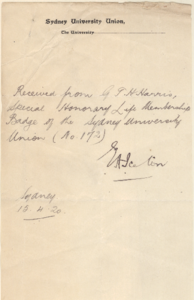 Sydney University Union.
The University
Received from G P H Harris,
Special Honorary Life Membership
Badge of the Sydney University
Union (No 173)
Sydney
15.4.20.